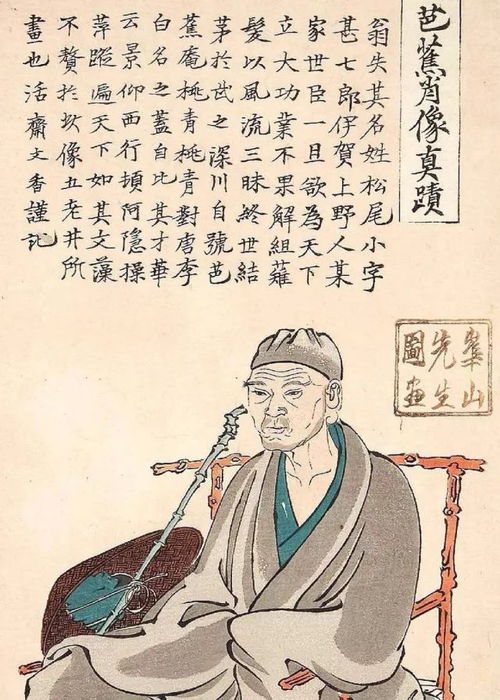 芭蕉肖像真蹟
翁失其名姓松尾小字
甚七郎伊賀上野人某
家世臣一旦欲為天下
立大功業不果解組薙
髮以風流三昧終世結
茅於武之深川自號芭
蕉庵桃青桃青對唐李
白名之蓋自比其才華
云景仰西行頓阿隠操
萍蹤遍天下如其文藻
不贅於玆像五老井所
畫也活齋文香謹記
崋山
先生
圖画